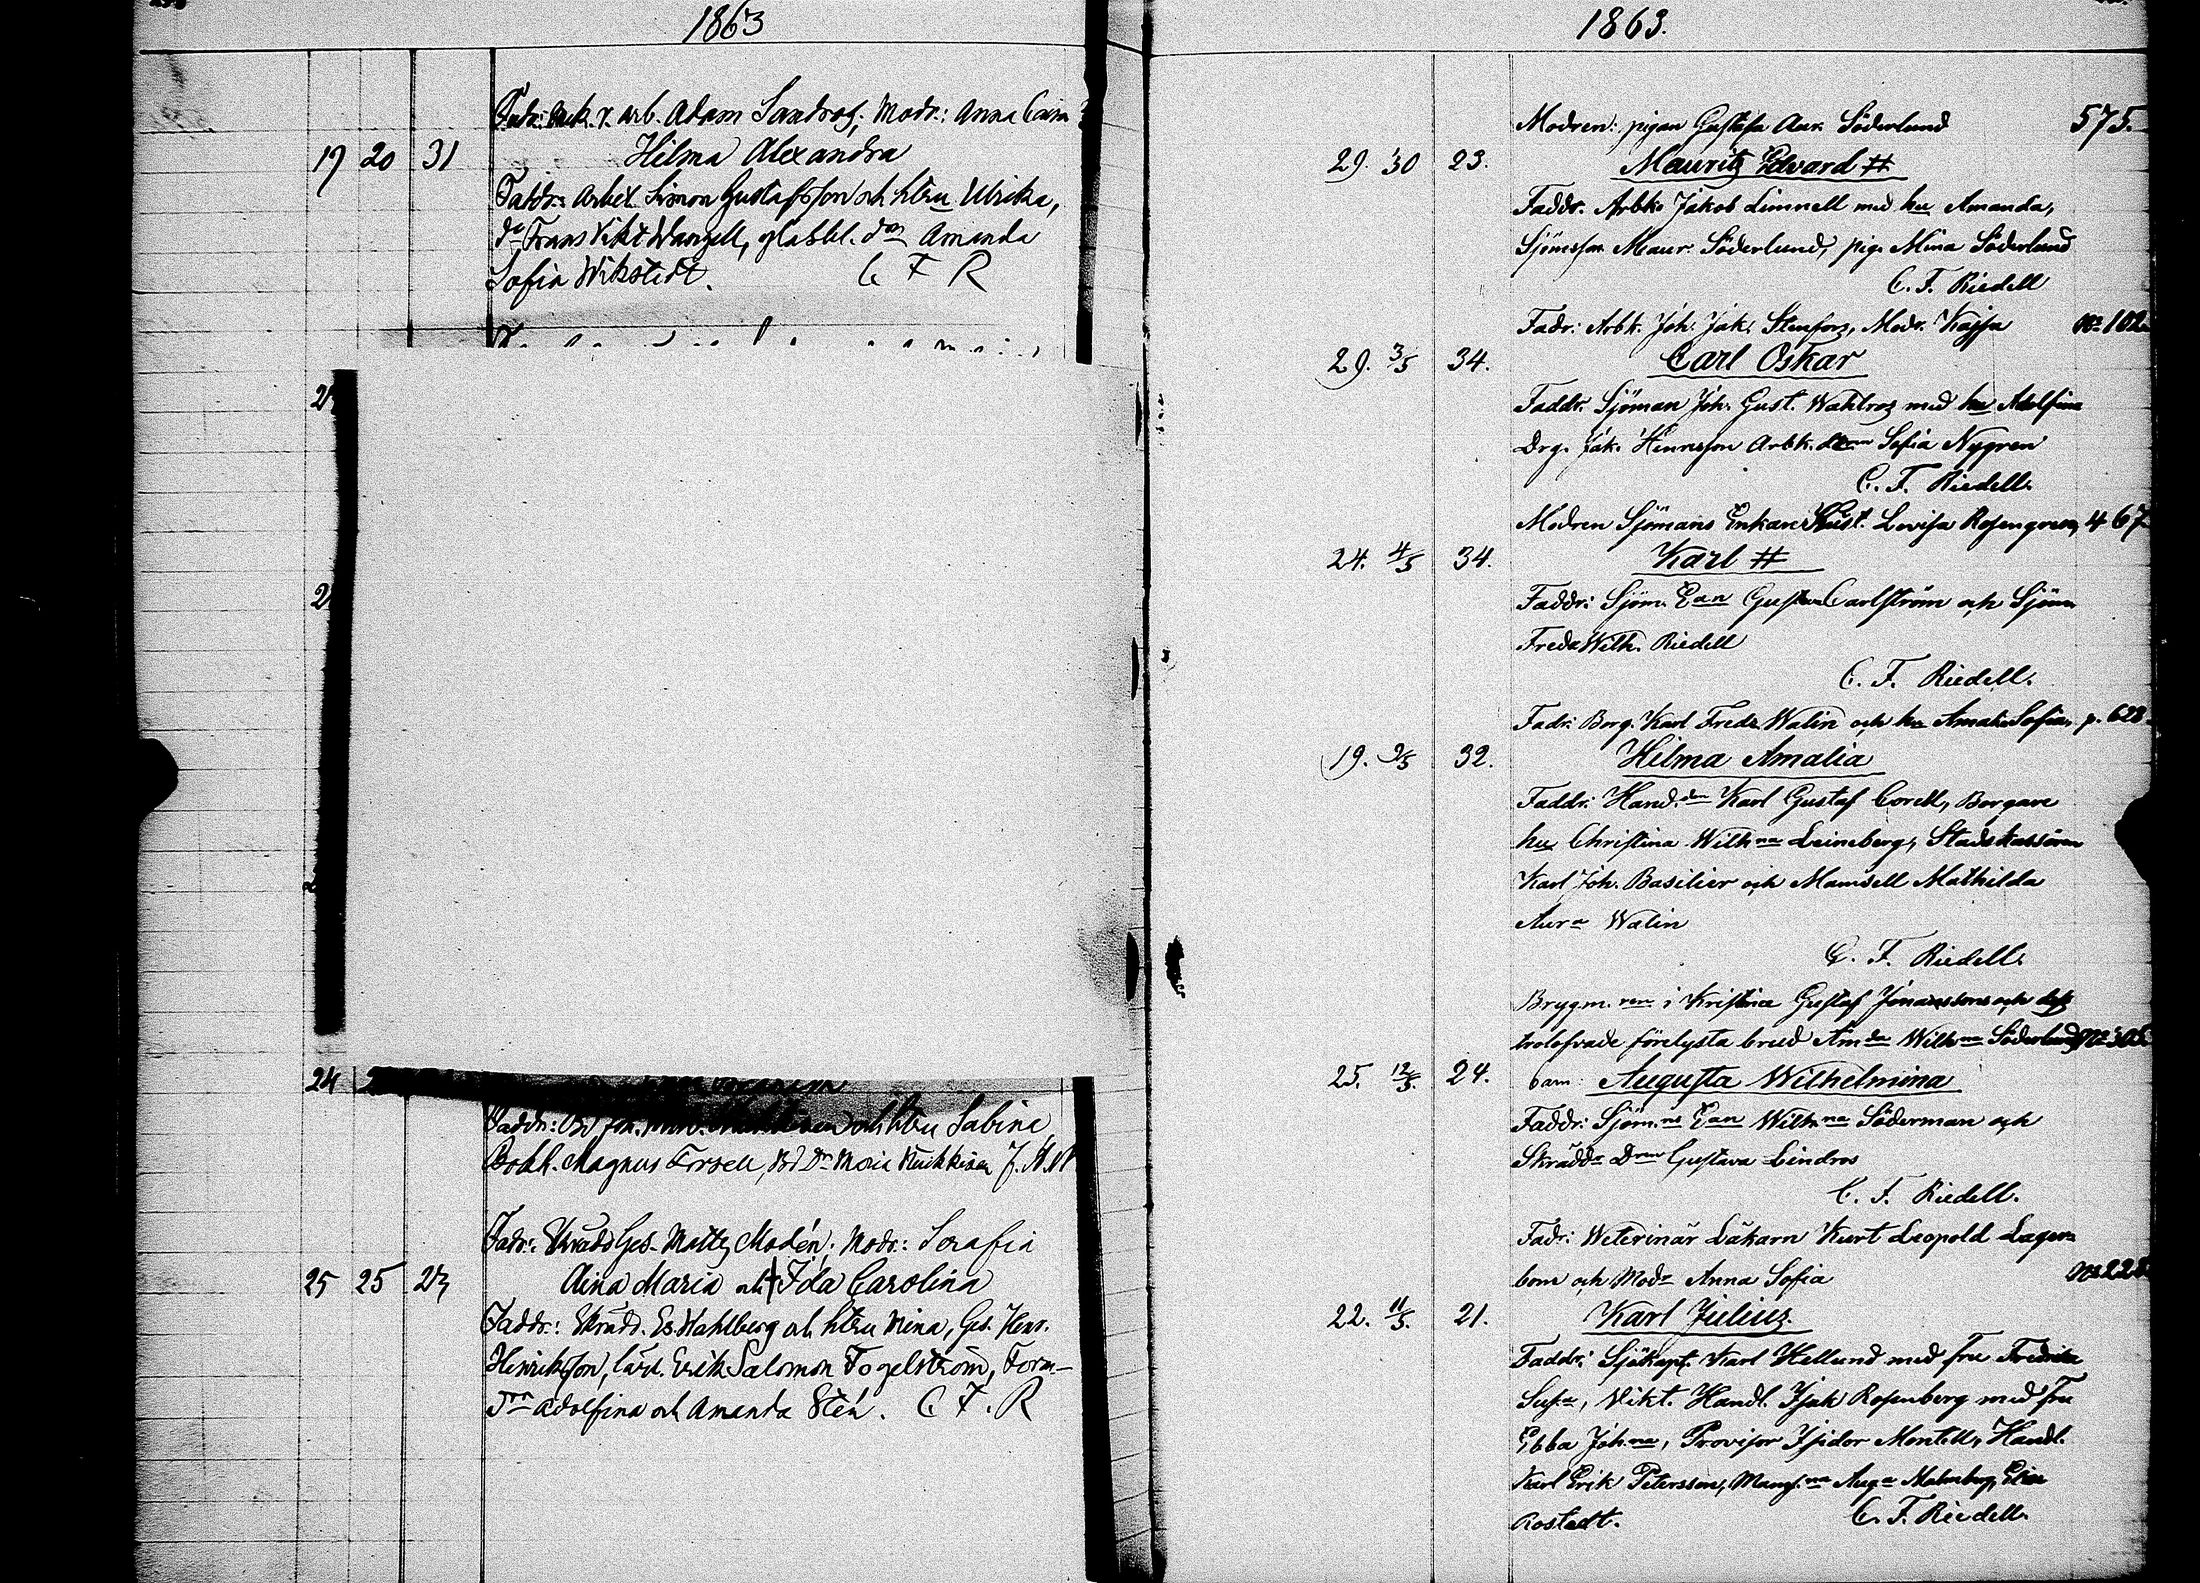 1863
Fadr: Arb. Adam Sandros; Modr: Anna
19 20 31 Hilma Alexandra
Faddr: Arbet. Simon Gustafsson och hu Ulrika,
Frans Wangell, Amanda
Sofia Wikstedt. C F R
24
Faddr: och hu Sabina
Bokh. Magnus Forsell, Maria
Fadr: Skrädd Ges. Matts Modén; Modr: Serafia
25 25 23 Aina Maria och † Ida Carolina
Faddr: Skrädd. Es. Wahlberg och hu Mina, Ges. Henr.
Henriksson, lärl. Erik Salomon Fogelström, Form-
Adolfina och Amanda Stén. C. F. R
1863.
Modren: pigan Gustafva Aur. Söderlund 575.
29. 30 23. Mauritz Edvard #
Faddr. Arbk. Jakob Limnell med hu Amanda,
Sjömsson Maur. Söderlund, pig. Mina Söderlund
C. F. Riedell
Fadr: Arbk. Joh. Jak. Stenfors, Modr. Kajsa No 102
29. 3/5 34. Carl Oskar
Faddr. Sjöman Joh. Gust. Wahlros med hu Adolfina
Drg. Jak. Henrisson Arbk. Sofia Nygren
C. F. Riedell.
Modren Sjömans Enkan Lovisa Rosengren, 467
24. 4/5 34. Karl #
Faddr: Sjöm. Ean Gustava Carlström och Sjöm
Fredr Wilh. Riedell
C. F. Riedell.
Fadr: Borg. Karl Fredr Walin och hu Amalia Sofia, p. 628
19. 9/5 32. Hilma Amalia
Faddr: Hand.den Karl Gustaf Corell, Borgare
hu Christina Wilhna Leineberg, Stadskassören
Karl Joh. Basilier och Mamsell Mathilda
Aura Walin
C. F. Riedell.
Brygm. ren i Kristina Gustaf Jonansson och dess
trolofvade förelysta brud Amda Wilhna Söderlund
25. 12/5. 24. barn: Augusta Wilhelmina
Faddr: Sjöm.ns Ean Wilhna Söderman och
Skrädd Gustava Lindros
C. F. Riedell.
Fadr: Weterinär Läkarn Kurt Leopold Lager-
bom och Modr Anna Sofia
22. 11/5. 21. Karl Julius.
Faddr: Sjökapt. Karl Hellund med fru Fredrika
Sus.a, Vikt. Handl. Isak Rosenberg med Fru
Ebba Joh.na, Provisor Isidor Montell, Handl.
Karl Erik Petersson, Mams.na Aug.a Malmberg,
Rostedt. C. F. Riedell.